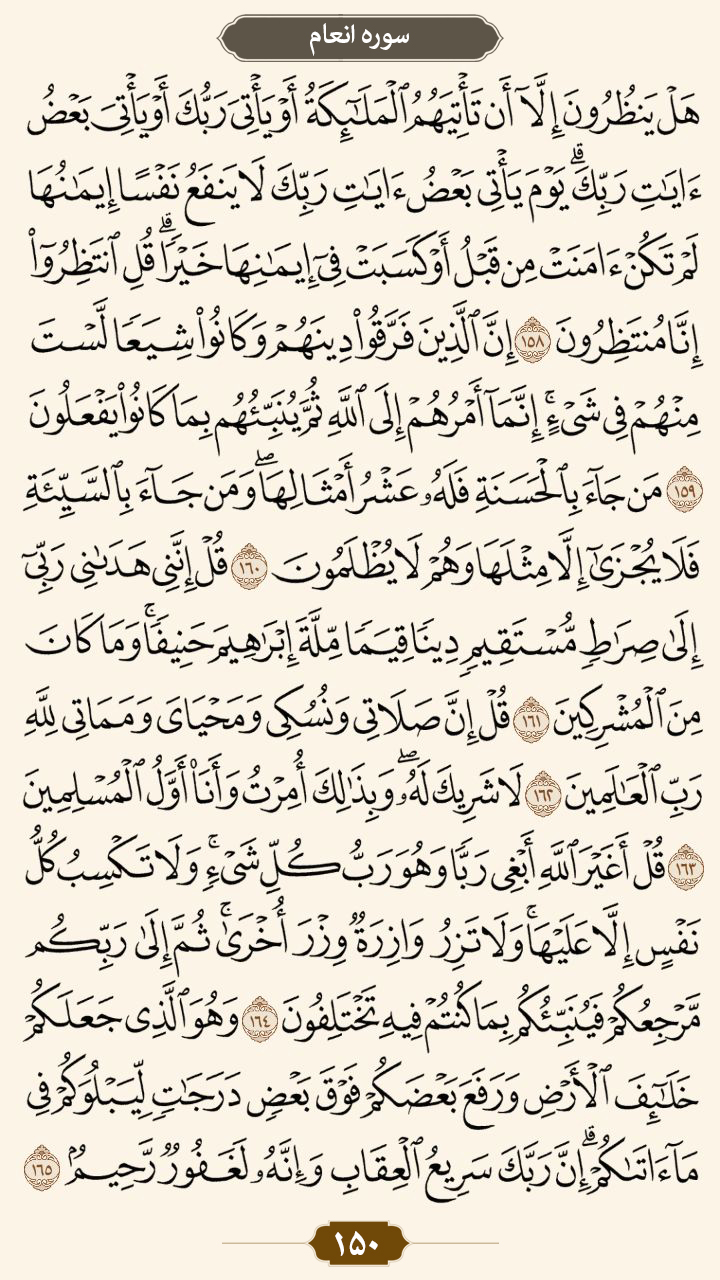 سوره انعام
هَلْ يَنظُرُونَ إِلَّآ أَن تَأْتِيَهُمُ ٱلْمَلَـٰٓئِكَةُ أَوْ يَأْتِىَ رَبُّكَ أَوْ يَأْتِىَ بَعْضُ
ءَايَـٰتِ رَبِّكَ ۗ يَوْمَ يَأْتِى بَعْضُ ءَايَـٰتِ رَبِّكَ لَا يَنفَعُ نَفْسًا إِيمَـٰنُهَا
لَمْ تَكُنْ ءَامَنَتْ مِن قَبْلُ أَوْ كَسَبَتْ فِىٓ إِيمَـٰنِهَا خَيْرًا ۗ قُلِ ٱنتَظِرُوٓا۟
إِنَّا مُنتَظِرُونَ ١٥٨ إِنَّ ٱلَّذِينَ فَرَّقُوا۟ دِينَهُمْ وَكَانُوا۟ شِيَعًا لَّسْتَ
مِنْهُمْ فِى شَىْءٍ ۚ إِنَّمَآ أَمْرُهُمْ إِلَى ٱللَّهِ ثُمَّ يُنَبِّئُهُم بِمَا كَانُوا۟ يَفْعَلُونَ
١٥٩ مَن جَآءَ بِٱلْحَسَنَةِ فَلَهُۥ عَشْرُ أَمْثَالِهَا ۖ وَمَن جَآءَ بِٱلسَّيِّئَةِ
فَلَا يُجْزَىٰٓ إِلَّا مِثْلَهَا وَهُمْ لَا يُظْلَمُونَ ١٦٠ قُلْ إِنَّنِى هَدَىٰنِى رَبِّىٓ
إِلَىٰ صِرَٰطٍ مُّسْتَقِيمٍ دِينًا قِيَمًا مِّلَّةَ إِبْرَٰهِيمَ حَنِيفًا ۚ وَمَا كَانَ
مِنَ ٱلْمُشْرِكِينَ ١٦١ قُلْ إِنَّ صَلَاتِى وَنُسُكِى وَمَحْيَاىَ وَمَمَاتِى لِلَّهِ
رَبِّ ٱلْعَـٰلَمِينَ ١٦٢ لَا شَرِيكَ لَهُۥ ۖ وَبِذَٰلِكَ أُمِرْتُ وَأَنَا۠ أَوَّلُ ٱلْمُسْلِمِينَ
١٦٣ قُلْ أَغَيْرَ ٱللَّهِ أَبْغِى رَبًّا وَهُوَ رَبُّ كُلِّ شَىْءٍ ۚ وَلَا تَكْسِبُ كُلُّ
نَفْسٍ إِلَّا عَلَيْهَا ۚ وَلَا تَزِرُ وَازِرَةٌ وِزْرَ أُخْرَىٰ ۚ ثُمَّ إِلَىٰ رَبِّكُم
مَّرْجِعُكُمْ فَيُنَبِّئُكُم بِمَا كُنتُمْ فِيهِ تَخْتَلِفُونَ ١٦٤ وَهُوَ ٱلَّذِى جَعَلَكُمْ
خَلَـٰٓئِفَ ٱلْأَرْضِ وَرَفَعَ بَعْضَكُمْ فَوْقَ بَعْضٍ دَرَجَـٰتٍ لِّيَبْلُوَكُمْ فِى
مَآ ءَاتَىٰكُمْ ۗ إِنَّ رَبَّكَ سَرِيعُ ٱلْعِقَابِ وَإِنَّهُۥ لَغَفُورٌ رَّحِيمٌۢ ١٦٥
۱۵۰